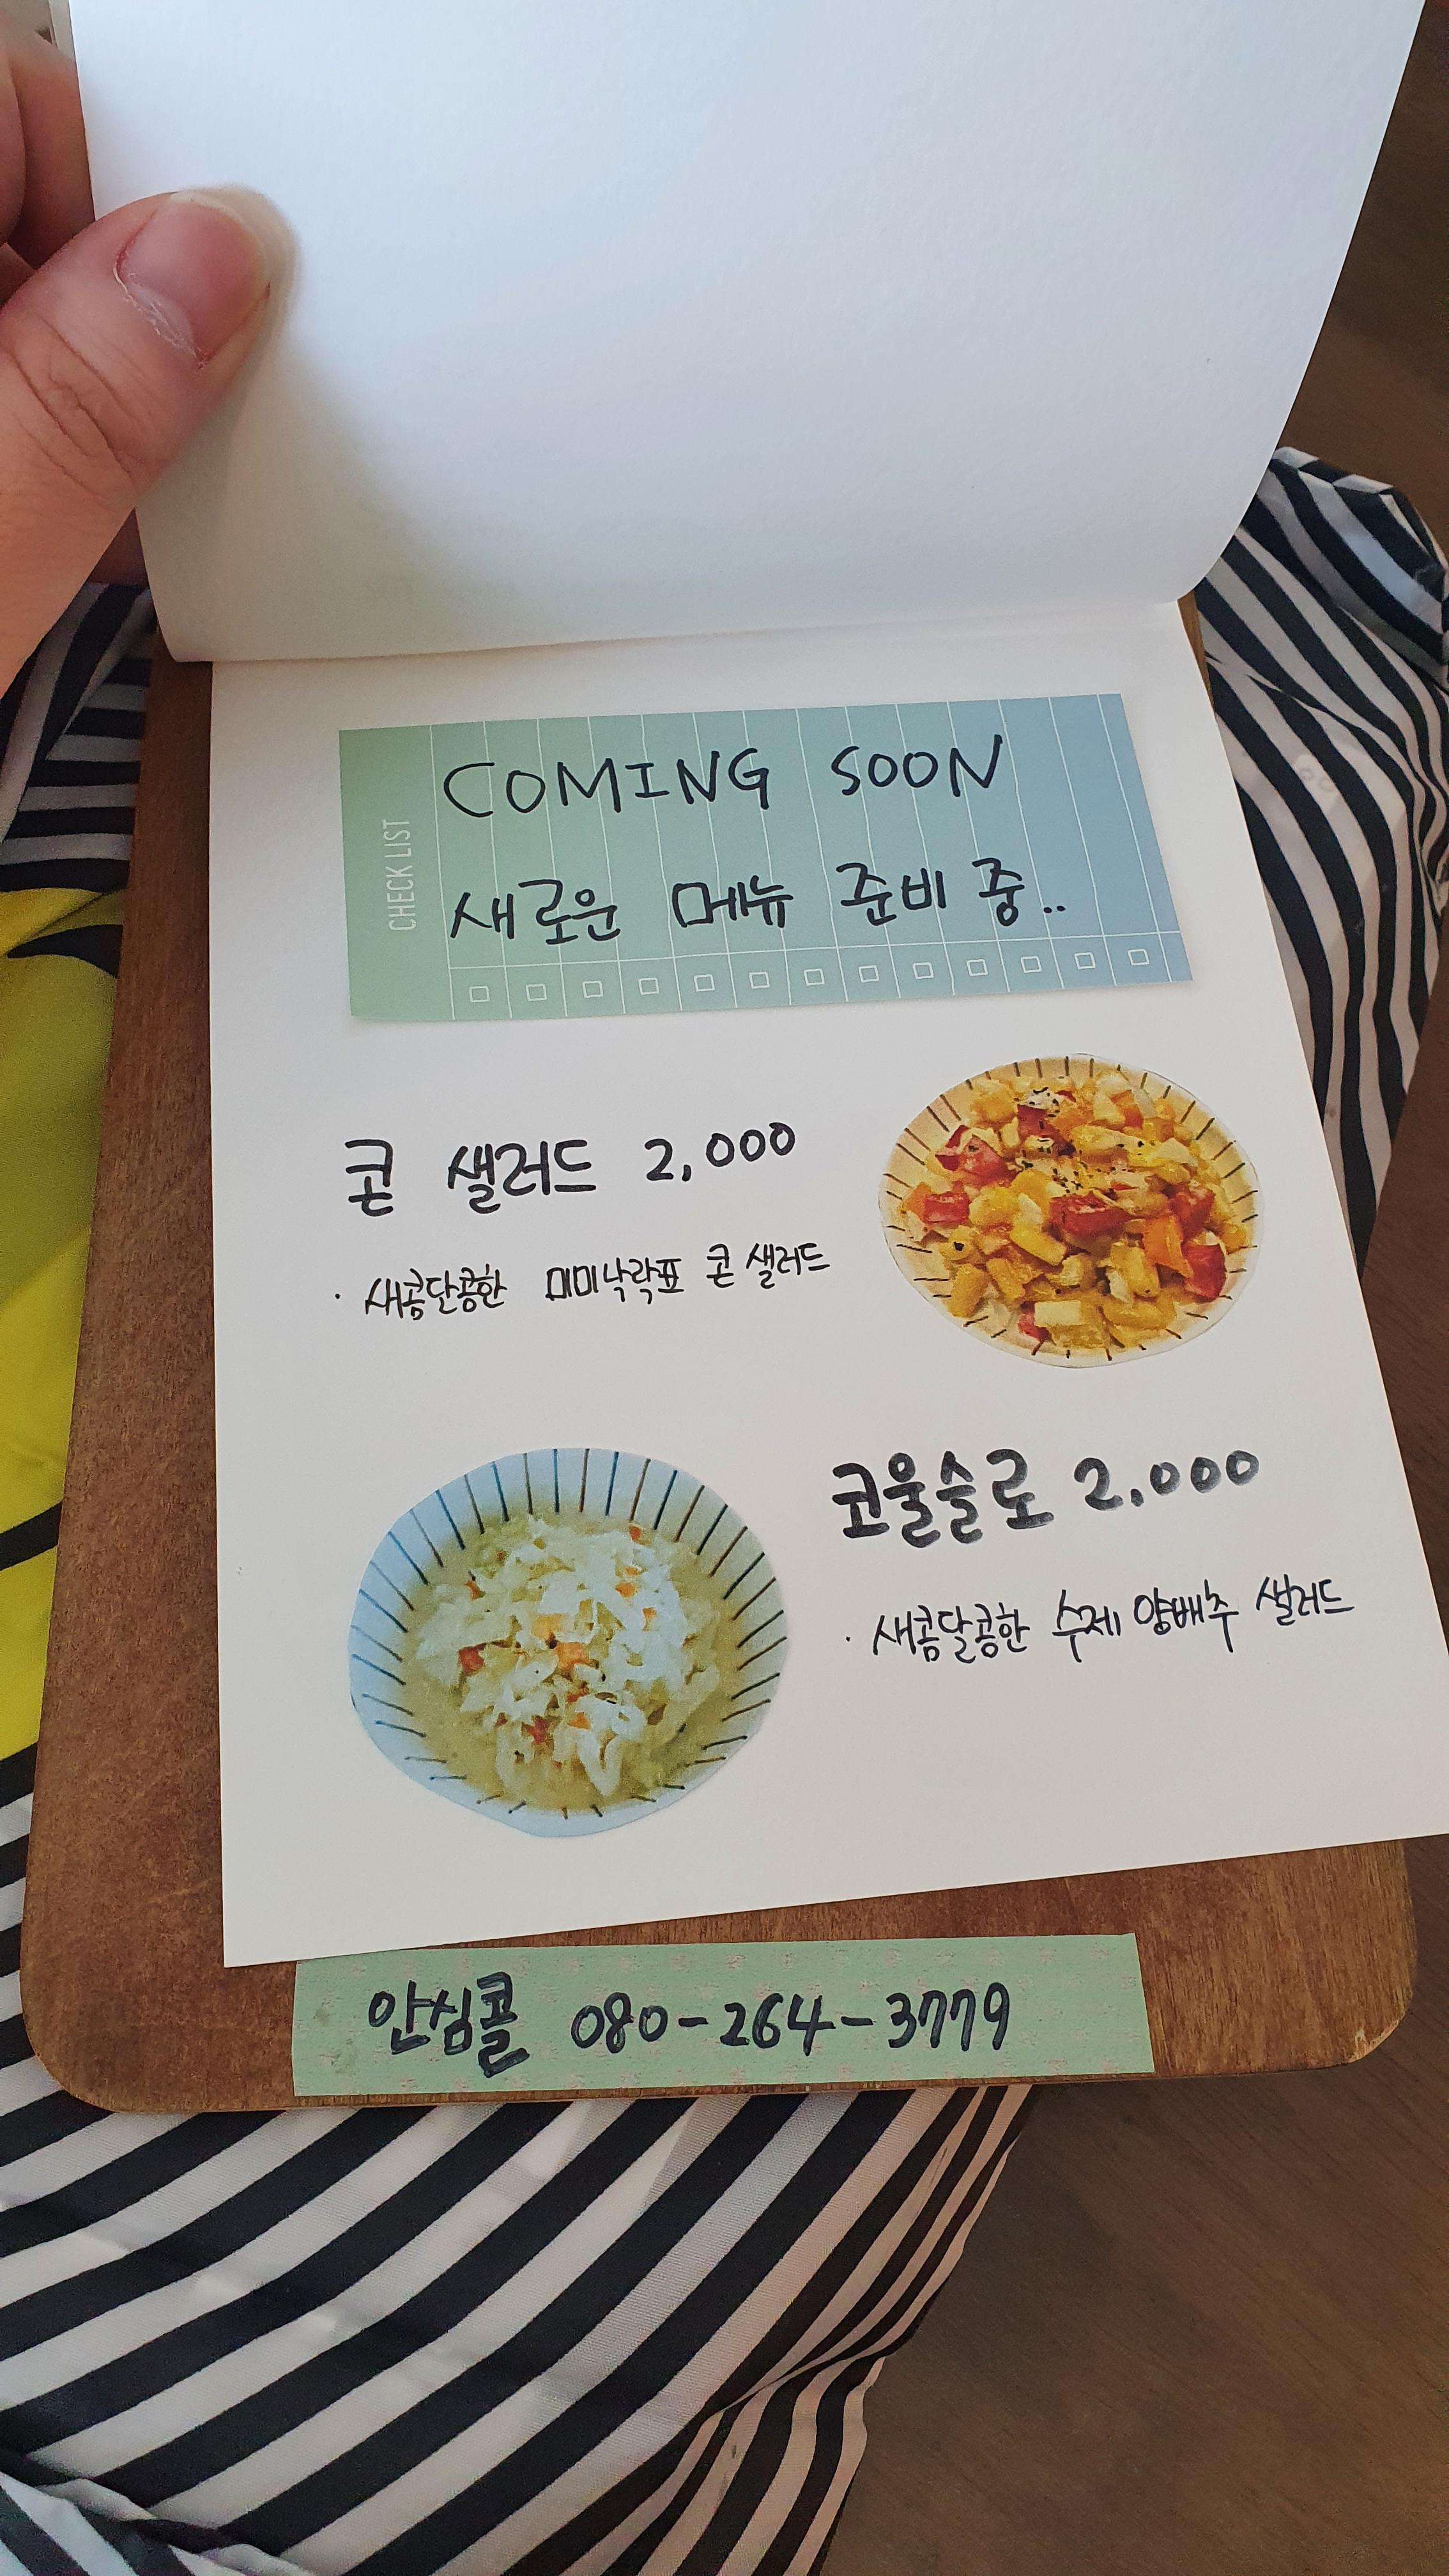 COMING SOON
CHECK LIST
새로운 메뉴 준비 중..
콘 샐러드 2,000
· 새콤달콤한 미미낙락표 콘 샐러드
코울슬로 2,000
· 새콤달콤한 수제 양배추 샐러드
안심콜 080-264-3779